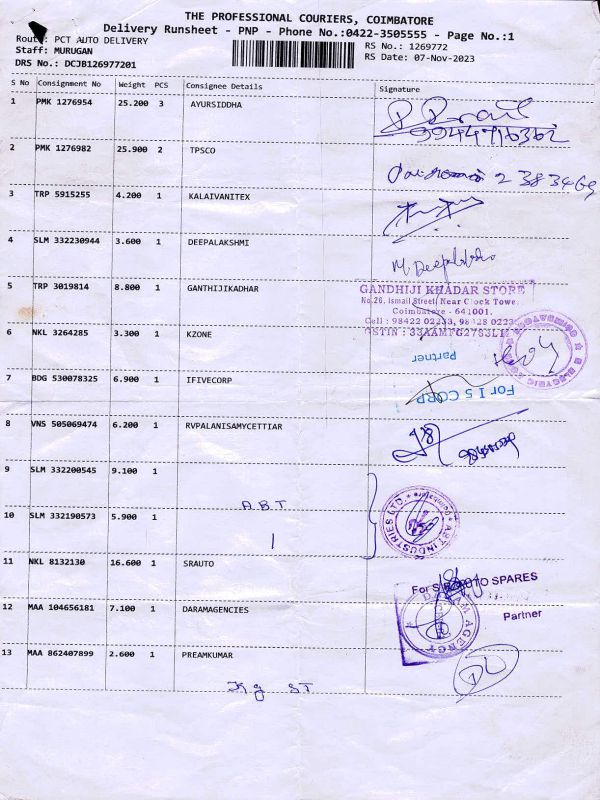 THE PROFESSIONAL COURIERS, COIMBATORE
Delivery Runsheet - PNP - Phone No.:0422-3505555 - Page No.:1
Route: PCT AUTO DELIVERY
Staff: MURUGAN
DRS No.: DCJB126977201
RS No.: 1269772
RS Date: 07-Nov-2023
S No Consignment No Weight PCS Consignee Details Signature
1 PMK 1276954 25.200 3 AYURSIDDHA
9944716362
2 PMK 1276982 25.900 2 TPSCO
3 TRP 5915255 4.200 1 KALAIVANITEX
4 SLM 332230944 3.600 1 DEEPALAKSHMI
M. Deepalakshmi
5 TRP 3019814 8.800 1 GANTHIJIKADHAR
GANDHIJI KHADAR STORE
No.26, Ismail Street, Near Clock Tower
Coimbatore - 641001.
6 NKL 3264285 3.300 1 KZONE
Partner
7 BDG 530078325 6.900 1 IFIVECORP
For I 5 CORP
8 VNS 505069474 6.200 1 RVPALANISAMYCETTIAR
9 SLM 332200545 9.100 1
A.B.T
ABT INDUSTRIES LTD.
10 SLM 332190573 5.900 1
11 NKL 8132130 16.600 1 SRAUTO
For S.R. AUTO SPARES
Partner
12 MAA 104656181 7.100 1 DARAMAGENCIES
13 MAA 862407899 2.600 1 PREAMKUMAR
Kg ST